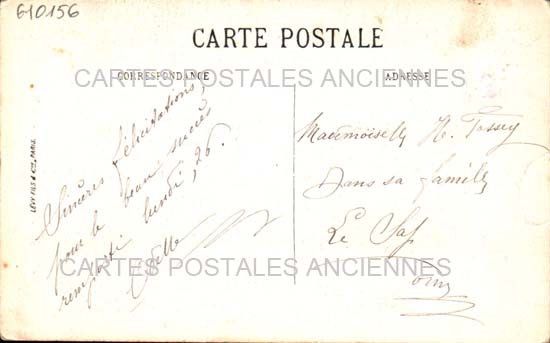 610156
CARTE POSTALE
CARTES POSTALES ANCIENNES
CORRESPONDANCE
ADRESSE
LÉVY FILS & Cie, PARIS
Sincères félicitations
pour le beau succès
remporté lundi, 26.
Mademoiselle H.
Dans sa famille
Le Sap
Orne
CARTES POSTALES ANCIENNES